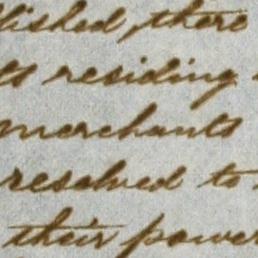 lished, there
ts residing
merchants
resolved to
their power